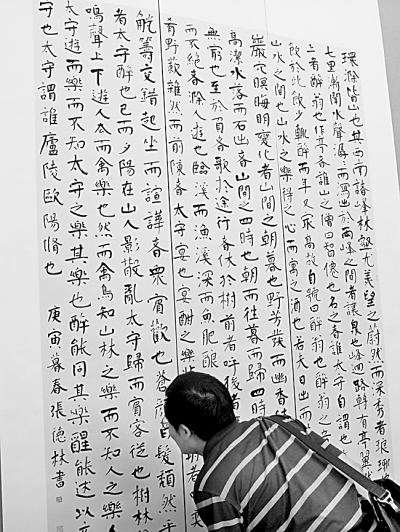 環滁皆山也其西南諸峰林壑尤美望之蔚然而深秀者琅琊
七里漸聞水聲潺潺而瀉出於兩峰之間者讓泉也峰迴路轉有亭翼然
上者醉翁亭也作亭者誰山之僧曰智僊也名之者誰太守自謂也
飲於此飲少輒醉而年又最高故自號曰醉翁也醉翁之
山水之間也山水之樂得之心而寓之酒也若夫日出而
巖穴暝晦明變化者山間之朝暮也野芳發而幽香
高潔水落而石出者山間之四時也朝而往暮而歸四時
無窮也至於負者歌於途行者休於樹前者呼後者
而不絕者滁人遊也臨溪而漁溪深而魚肥釀
肴野蔌雜然而前陳者太守宴也宴酣之樂非
觥籌交錯起坐而諠譁者眾賓歡也蒼顏白髮頹然乎
者太守醉也已而夕陽在山人影散亂太守歸而賓客從也樹林
鳴聲上下遊人去而禽樂也然而禽鳥知山林之樂而不知人之樂人
太守遊而樂而不知太守之樂其樂也醉能同其樂醒能述以文
守也太守謂誰廬陵歐陽脩也
庚寅暮春張德林書